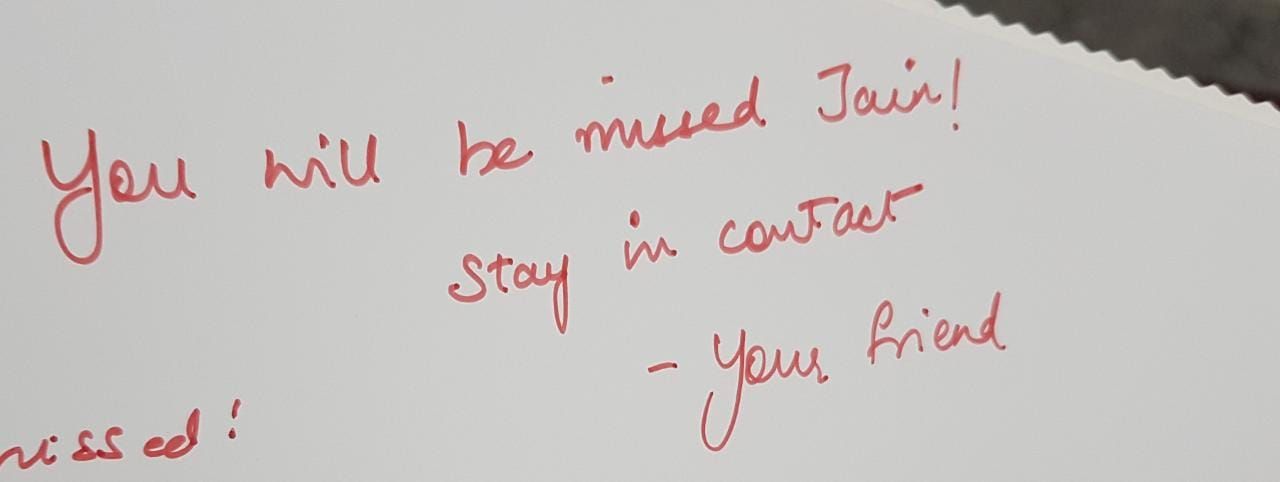 You will be missed Jain!
Stay in contact
- Your friend
missed!